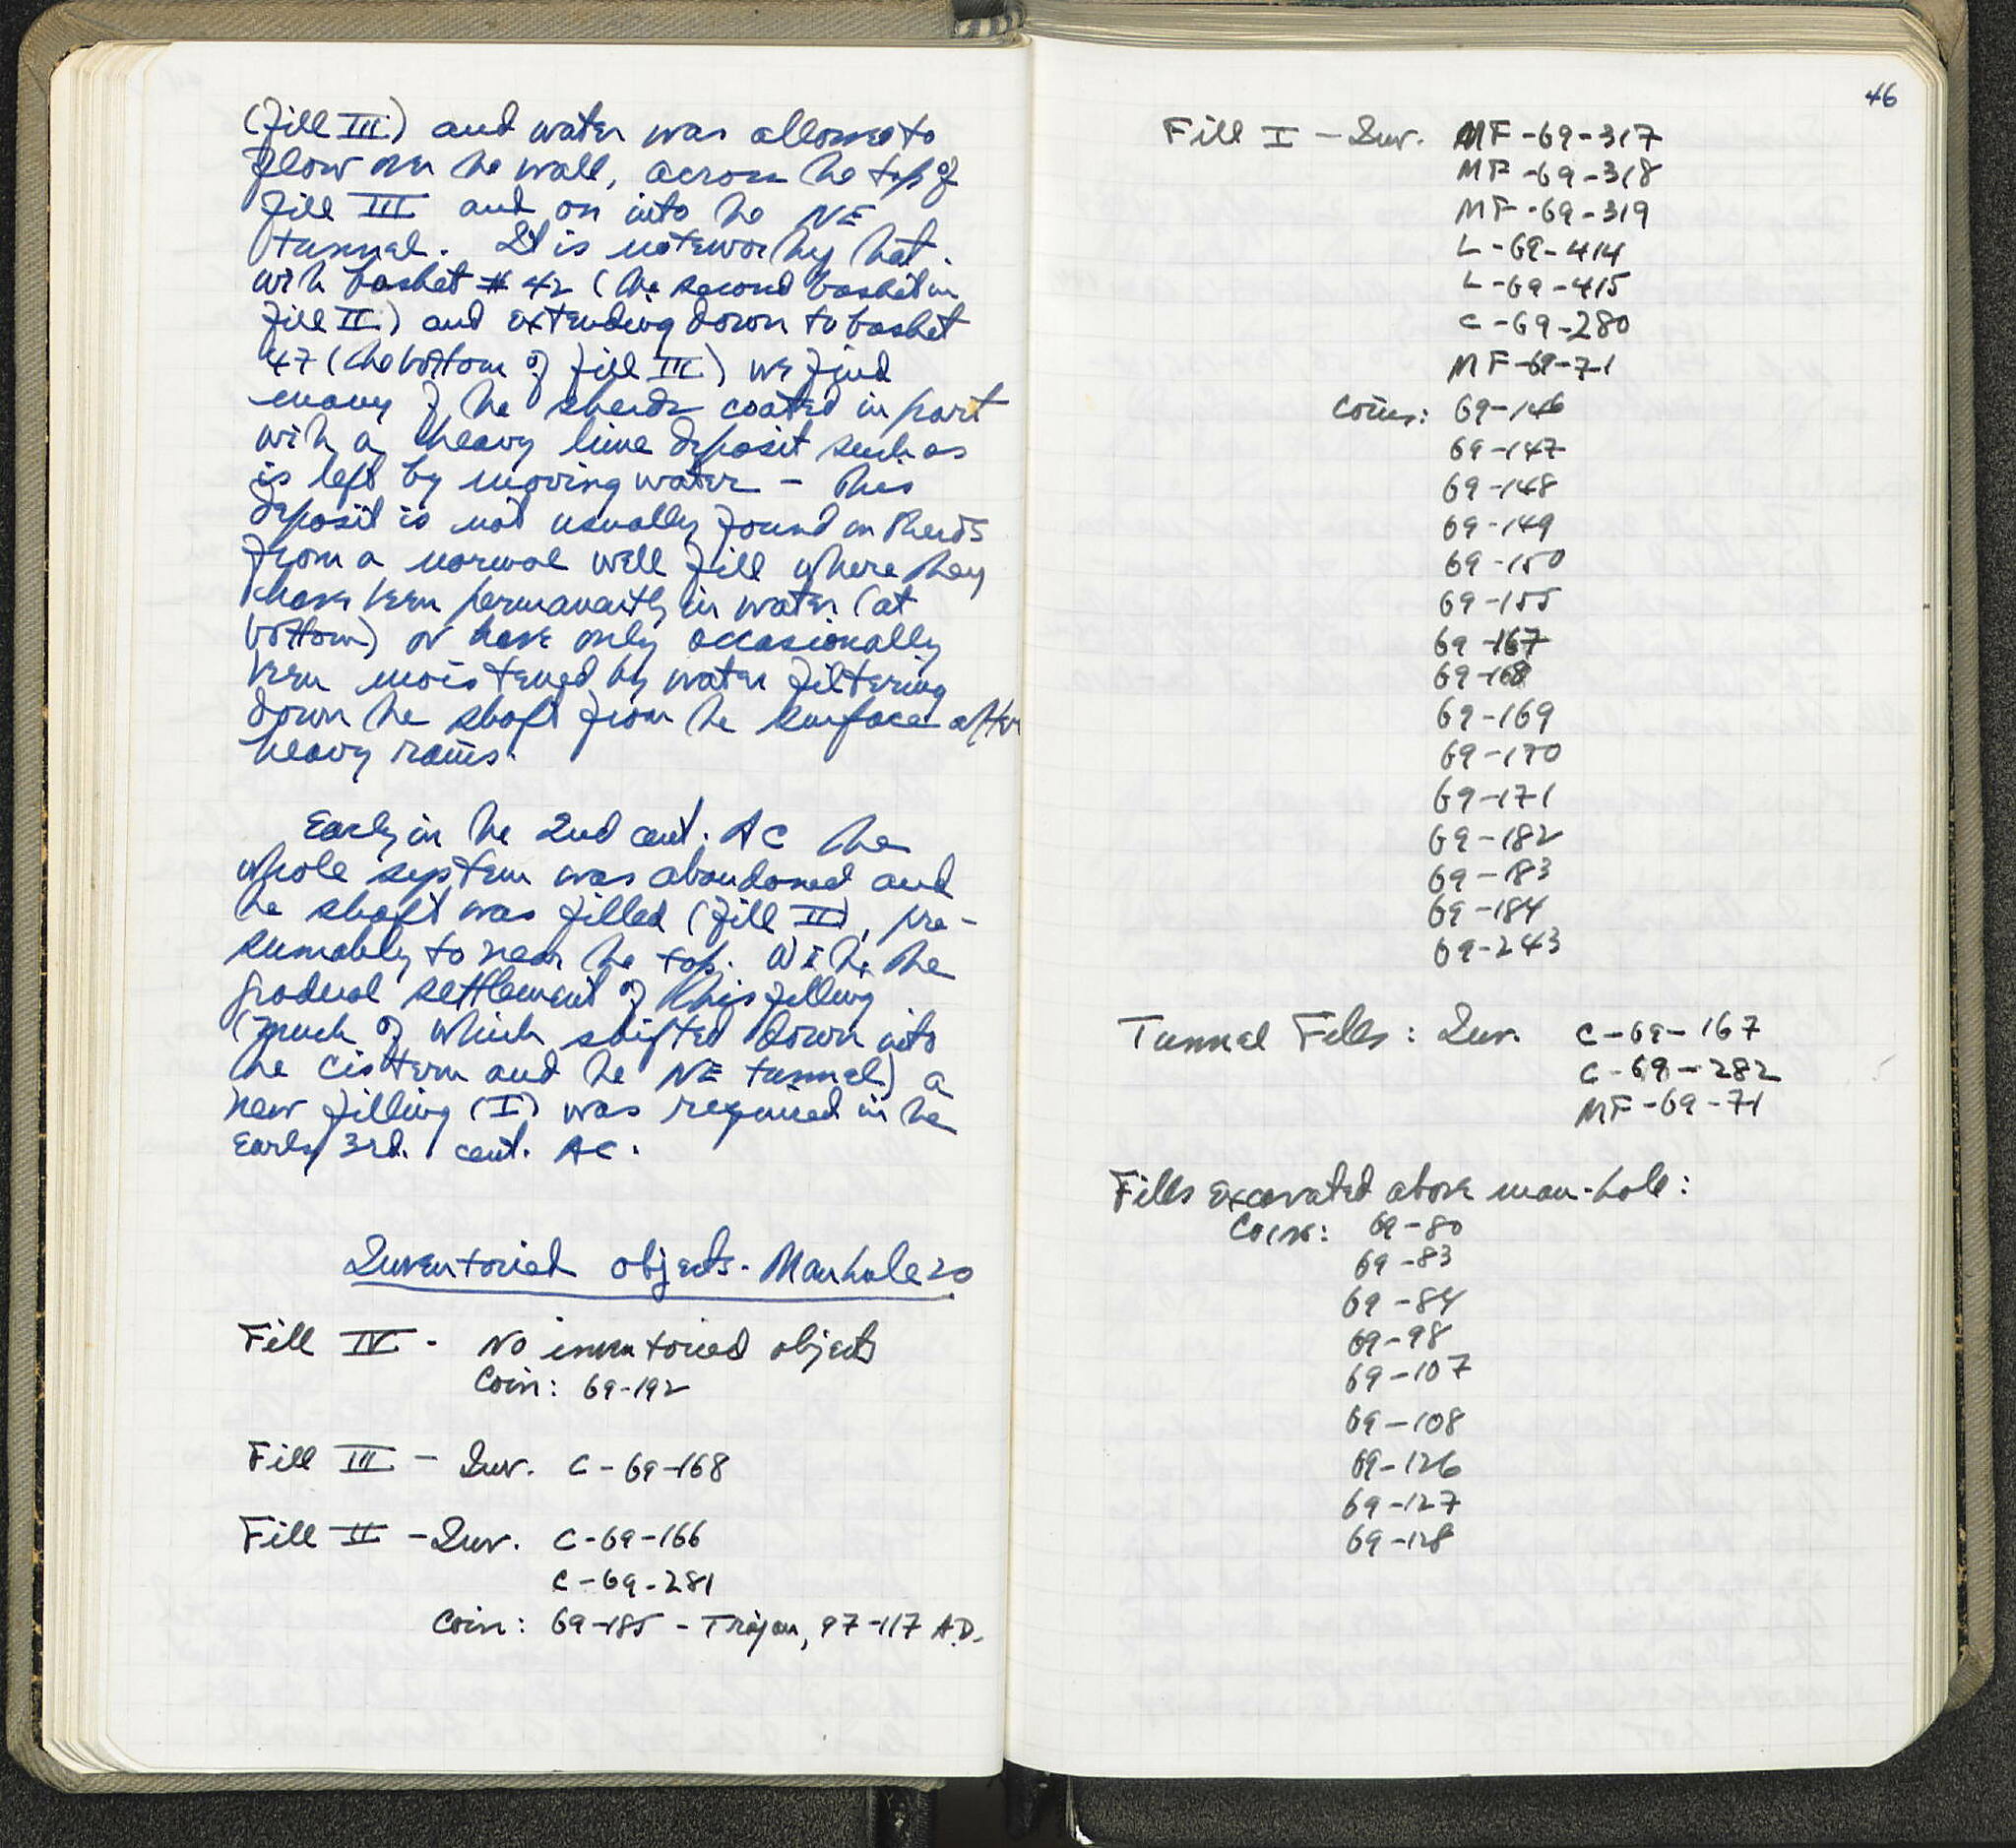 (fill III) and water was allowed to
flow over the wall, across the top of
fill III and on into the NE
tunnel. It is noteworthy that
with basket # 42 (the second basket in
fill II) and extending down to basket
47 (the bottom of fill III) we find
many of the sherds coated in part
with a heavy lime deposit such as
is left by moving water - this
deposit is not usually found on sherds
from a normal well fill where they
have been permanently in water (at
bottom) or have only occasionally
been moistened by water filtering
down the shaft from the surface after
heavy rains.
Early in the 2nd cent. AC the
whole system was abandoned and
the shaft was filled (fill II), pre-
sumably to near the top. With the
gradual settlement of this filling
(much of which shifted down into
the cistern and the NE tunnel) a
new filling (I) was required in the
early 3rd. cent. AC.
Inventoried objects - Manhole 20
Fill IV - No inventoried objects
Coin: 69-192
Fill III - Inv. C-69-168
Fill II - Inv. C-69-166
C-69-281
Coin: 69-185 - Trajan, 97-117 A.D.
46
Fill I - Inv. MF-69-317
MF-69-318
MF-69-319
L-69-414
L-69-415
C-69-280
MF-69-71
Coins: 69-146
69-147
69-148
69-149
69-150
69-155
69-167
69-168
69-169
69-170
69-171
69-182
69-183
69-184
69-243
Tunnel Fills: Inv. C-69-167
C-69-282
MF-69-71
Fills excavated above man-hole:
Coins: 69-80
69-83
69-84
69-98
69-107
69-108
69-126
69-127
69-128